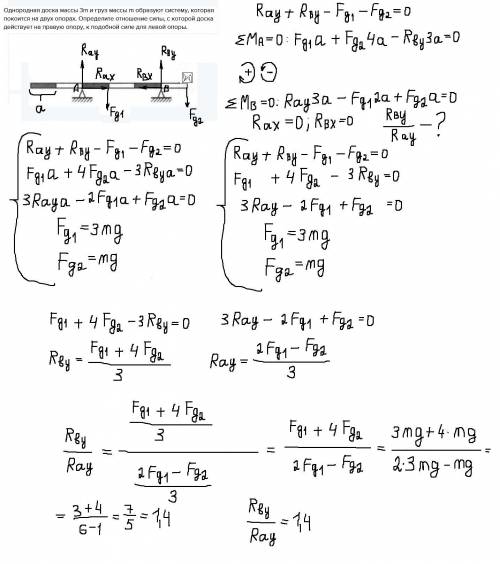 Однородная доска массы 3m и груз массы m образуют систему, которая
покоится на двух опорах. Определите отношение силы, с которой доска
действует на правую опору, к подобной силе для левой опоры.
Ray Rby
Rax Rbx
A B
a Fg1 Fg2
Ray + Rby - Fg1 - Fg2 = 0
ΣMA=0: Fg1a + Fg24a - Rby3a = 0
+ -
ΣMB=0: Ray3a - Fg12a + Fg2a = 0
Rax = 0; RBX = 0 Rby/Ray - ?
Ray + Rby - Fg1 - Fg2 = 0
Fg1a + 4Fg2a - 3Rbya = 0
3Raya - 2Fg1a + Fg2a = 0
Fg1 = 3mg
Fg2 = mg
Ray + Rby - Fg1 - Fg2 = 0
Fg1 + 4Fg2 - 3Rby = 0
3Ray - 2Fg1 + Fg2 = 0
Fg1 = 3mg
Fg2 = mg
Fg1 + 4Fg2 - 3Rby = 0 3Ray - 2Fg1 + Fg2 = 0
Rby = (Fg1 + 4Fg2)/3 Ray = (2Fg1 - Fg2)/3
Rby/Ray = ((Fg1 + 4Fg2)/3)/((2Fg1 - Fg2)/3) = (Fg1 + 4Fg2)/(2Fg1 - Fg2) = (3mg + 4·mg)/(2·3mg - mg) =
= (3+4)/(6-1) = 7/5 = 1,4 Rby/Ray = 1,4